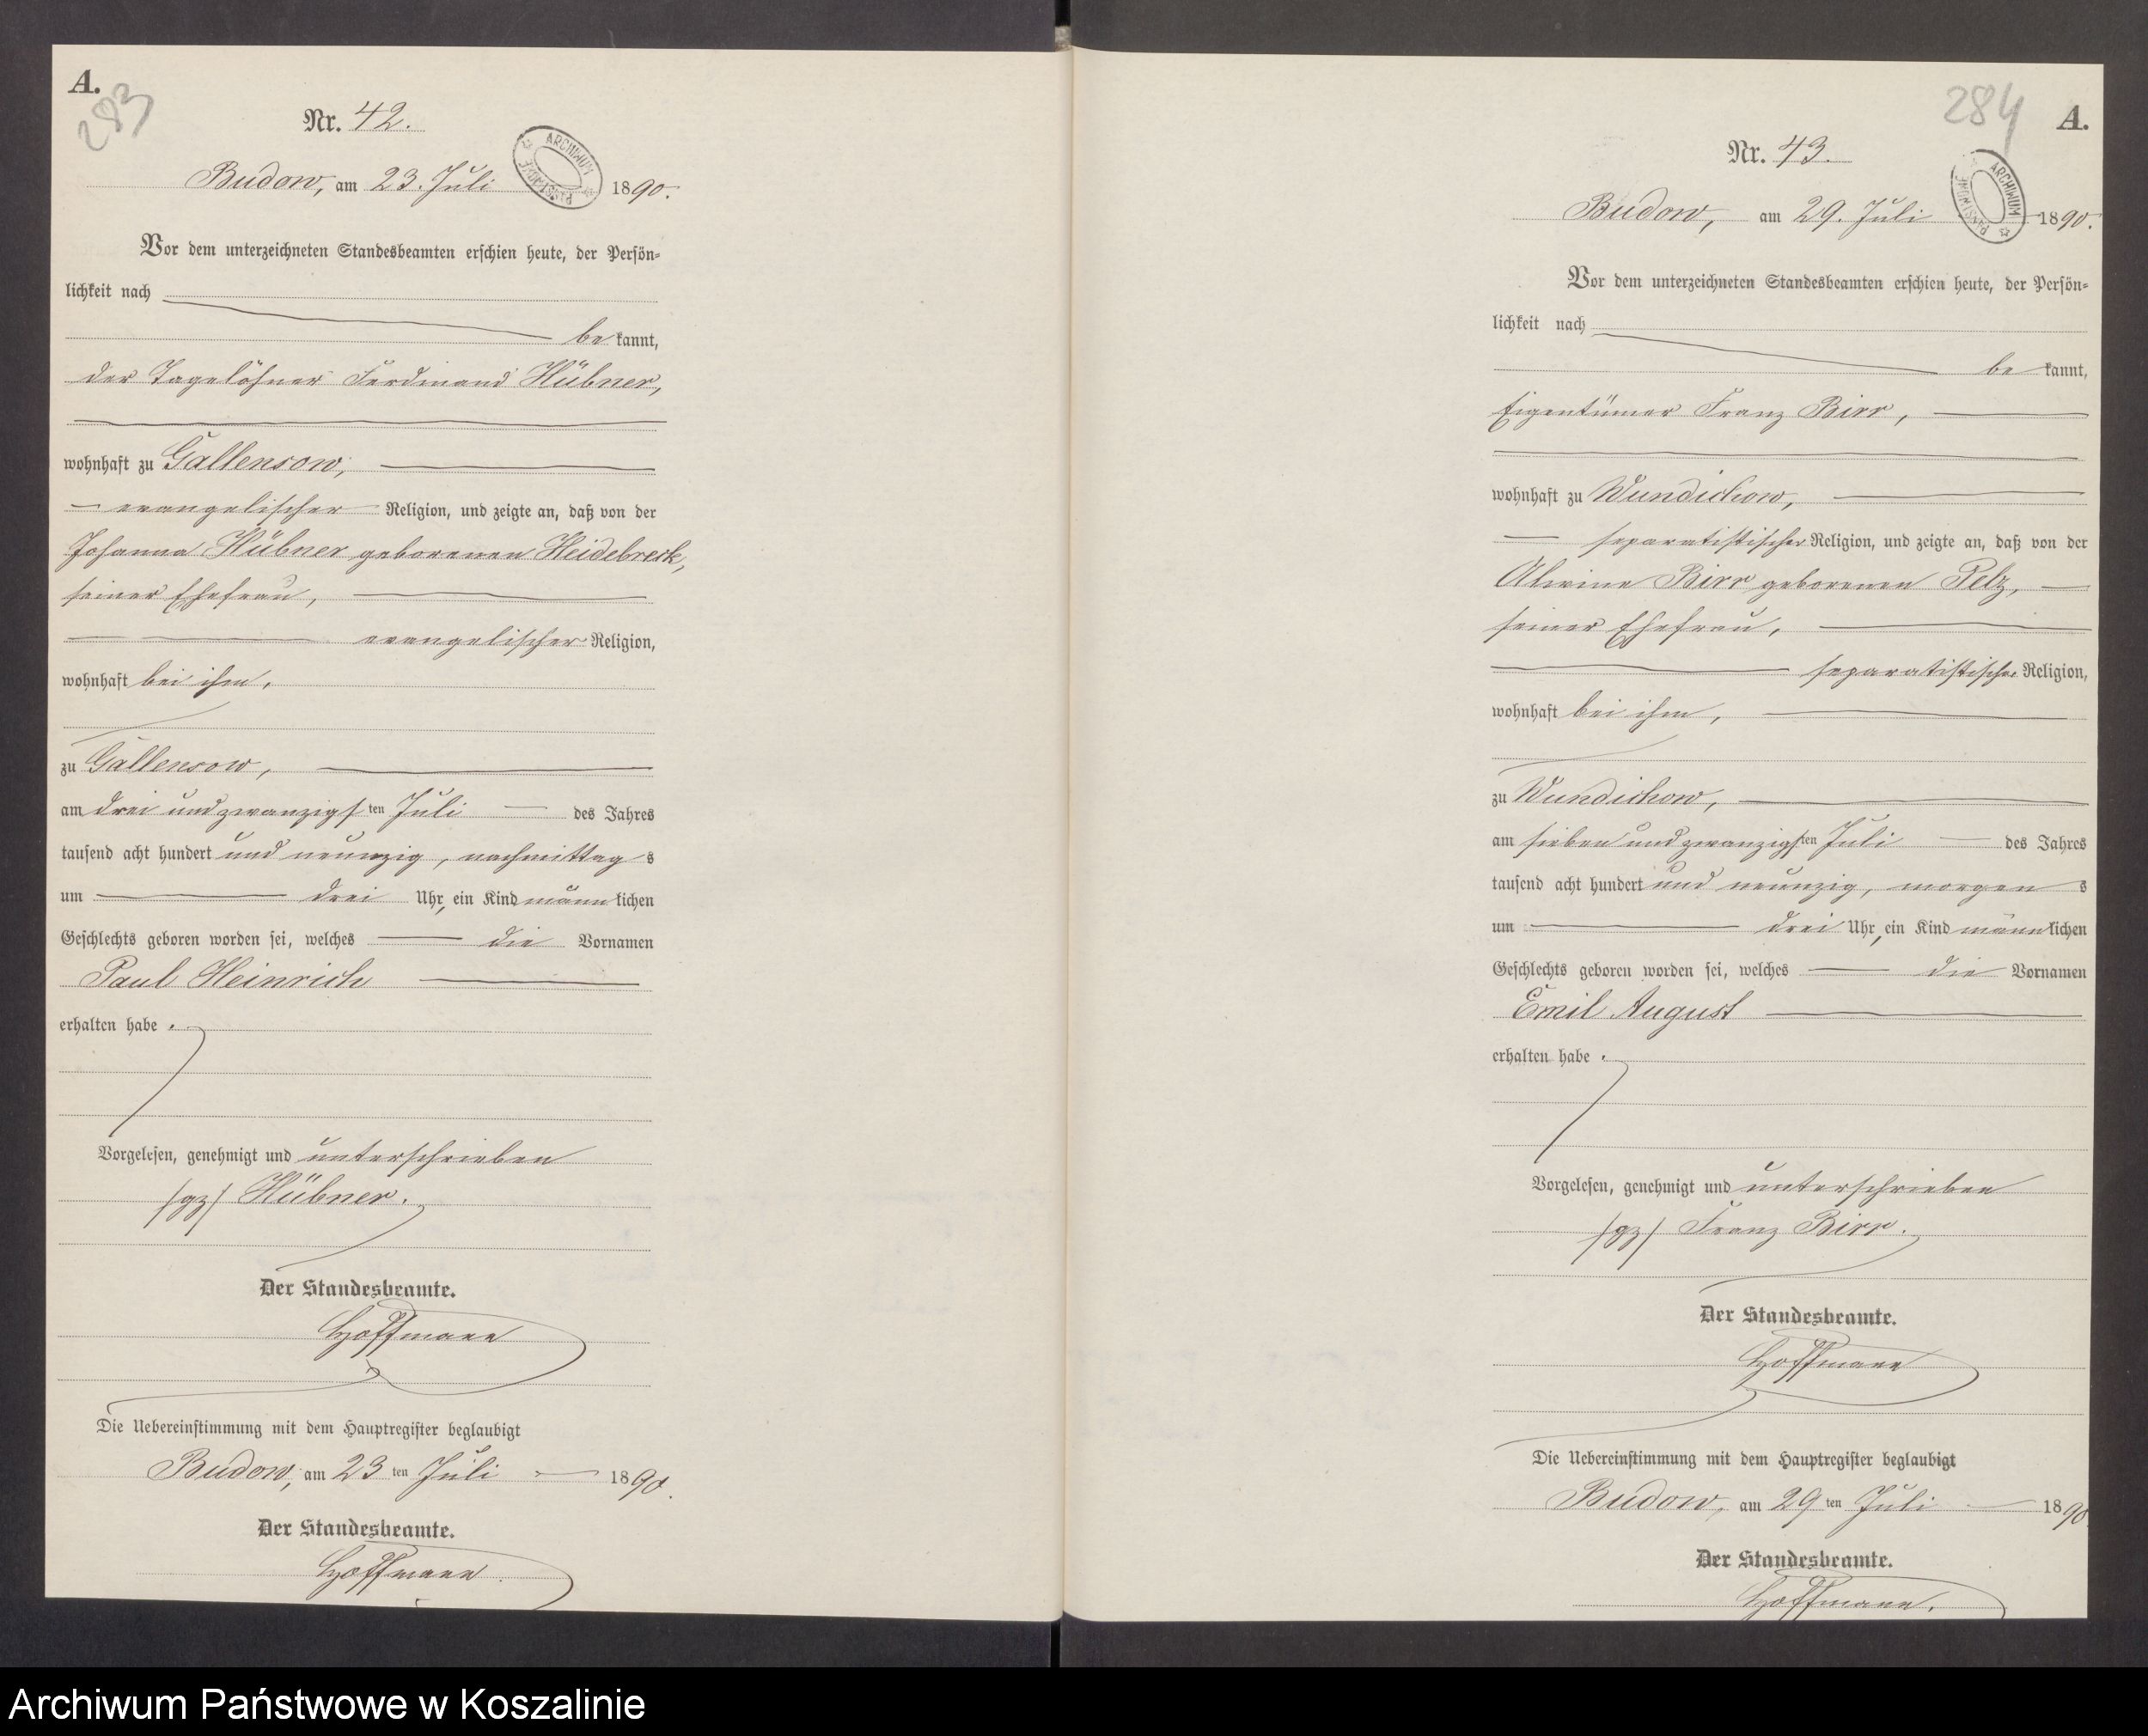 A.
283
Nr. 42.
Budow, am 23. Juli 1890.
ARCHIWUM PAŃSTWOWE
Vor dem unterzeichneten Standesbeamten erschien heute, der Persön-
lichkeit nach
be kannt,
der Tagelöhner Ferdinand Hübner,
wohnhaft zu Gallensow,
evangelischer Religion, und zeigte an, daß von der
Johanna Hübner geborenen Heidebreck,
seiner Ehefrau,
evangelischer Religion,
wohnhaft bei ihm,
zu Gallensow,
am drei und zwanzigsten Juli des Jahres
tausend acht hundert und neunzig, nachmittags
um drei Uhr, ein Kind männlichen
Geschlechts geboren worden sei, welches die Vornamen
Paul Heinrich
erhalten habe.
Vorgelesen, genehmigt und unterschrieben
/gz/ Hübner.
Der Standesbeamte.
Hoffmann
Die Uebereinstimmung mit dem Hauptregister beglaubigt
Budow, am 23 ten Juli 1890.
Der Standesbeamte.
Hoffmann.
284
A.
Nr. 43.
Budow, am 29. Juli 1890.
ARCHIWUM PAŃSTWOWE
Vor dem unterzeichneten Standesbeamten erschien heute, der Persön-
lichkeit nach
be kannt,
Eigentümer Franz Birr,
wohnhaft zu Wundichow,
separatistischer Religion, und zeigte an, daß von der
Alwine Birr geborenen Pelz,
seiner Ehefrau,
separatistischer Religion,
wohnhaft bei ihm,
zu Wundichow,
am sieben und zwanzigsten Juli des Jahres
tausend acht hundert und neunzig, morgens
um drei Uhr, ein Kind männlichen
Geschlechts geboren worden sei, welches die Vornamen
Emil August
erhalten habe.
Vorgelesen, genehmigt und unterschrieben
/gz/ Franz Birr.
Der Standesbeamte.
Hoffmann
Die Uebereinstimmung mit dem Hauptregister beglaubigt
Budow, am 29 ten Juli 1890.
Der Standesbeamte.
Hoffmann.
Archiwum Państwowe w Koszalinie